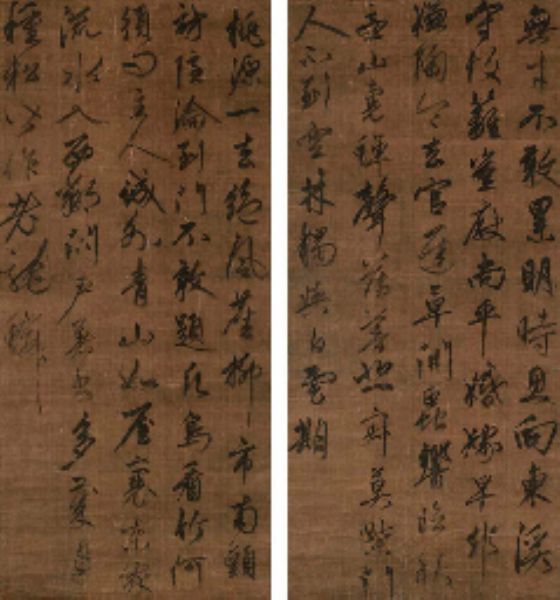 無才不敢累明時且向東溪
守故籬豈厭尚平婚嫁早却
嫌陶令去官遲草間蟲響臨秋
急山裏蟬聲薄暮悲寂寞柴門
人不到空林獨與白雲期
桃源一去絕風塵柳市南頭
訪隱淪到門不敢題凡鳥看竹何
須問主人城外青山如屋裏東家
流水入西鄰閉戶著書多歲月
種松皆作老龍鱗